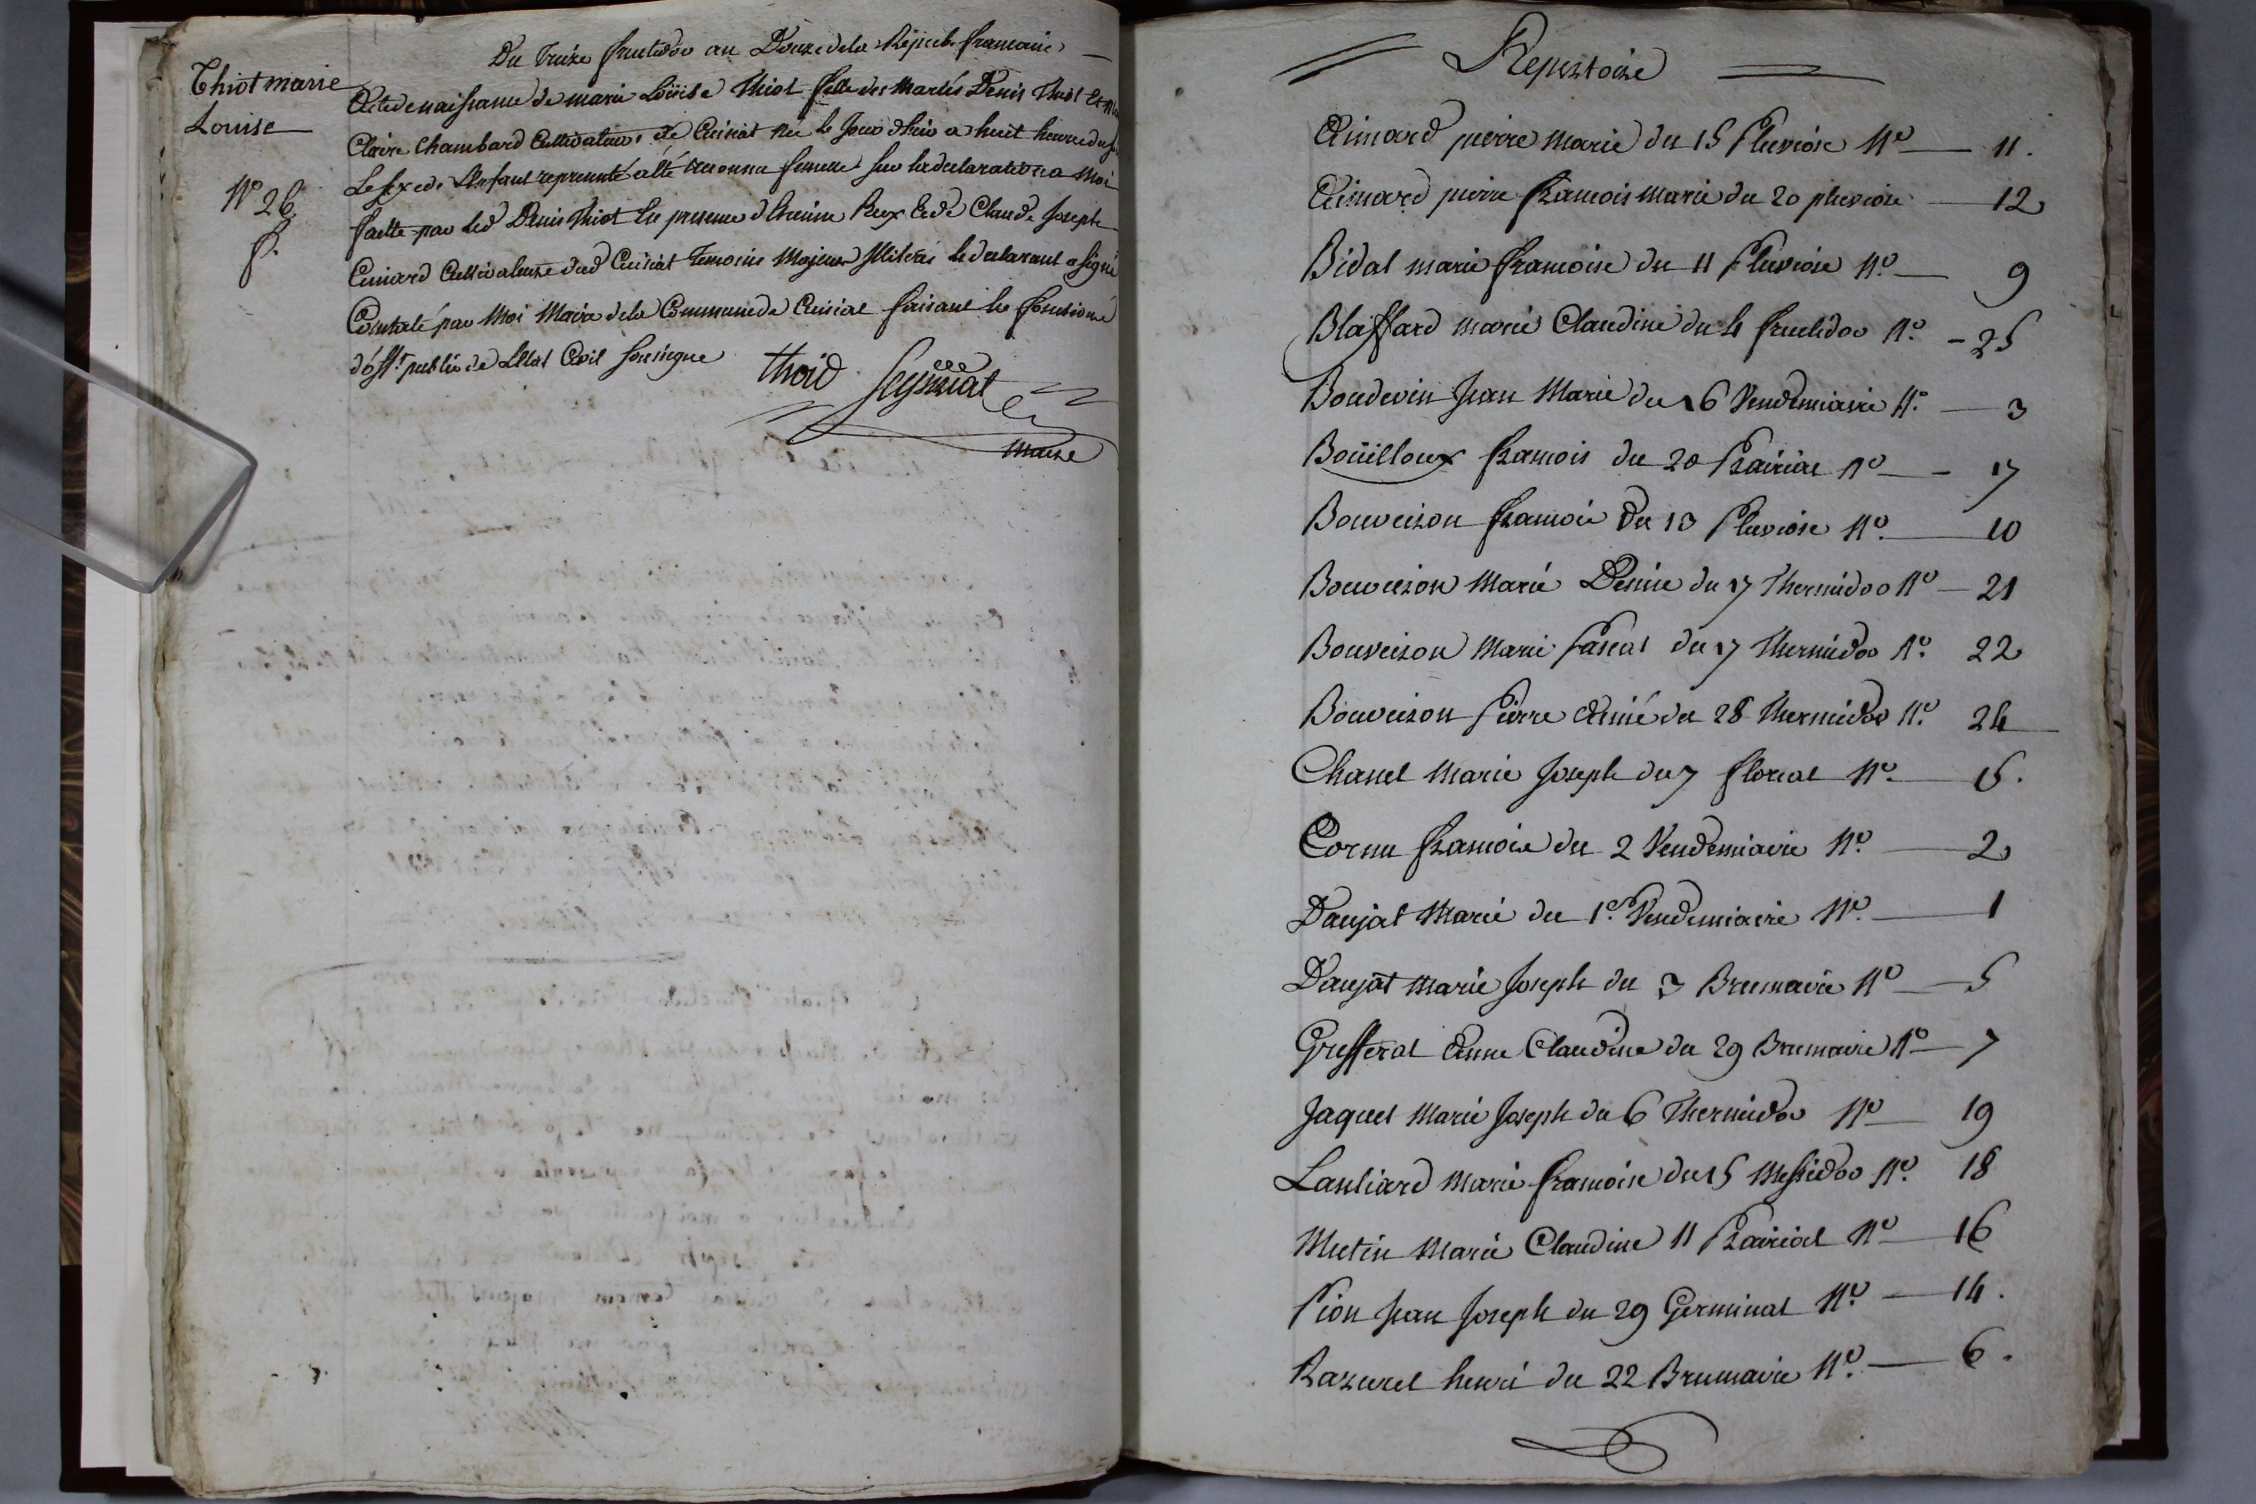 Thiot marie
Louise
N.° 26
f.
Du treize fructidor an Douze de la Répube. francaise
Acte de naissance de marie Loüise Thiot fille des mariés Denis Thiot Et
Claire Chambard Cultivateurs de Cuisiat née le Jour dhier a huit heures du
Le sexe de L'Enfant representé a été reconnu femelle sur la declaration a moi
faitte par led Denis Thiot En presence d Reux Et de Claude Joseph
Cultivateurs dud Cuisiat temoins Majeurs le declarant a signé
Constaté par Moi Maire de la Commune de Cuisiat faisant les fonctions
d'off.r public de L'Etat Civil soussigné
thoid
maire
Repertoire
Aimard pierre marie du 15 Pluviose N.° 11.
Aimard pierre francois marie du 20 pluviose 12
Bidat marie francoise du 11 Pluviose N.° 9
Blaffard marie Claudine du 4 fructidor N.° 25
Boudevin Jean Marie du 16 Vendemiaire N.° 3
Boüilloux francois du 20 Prairial N.° 17
Bouveiron francois Du 13 Pluviose N.° 10
Bouveiron Marie Denise du 17 Thermidor N.° 21
Bouveiron Marie Pascal du 17 Thermidor N.° 22
Bouveiron Pierre Aimé du 28 Thermidor N.° 24
Chanel Marie Joseph du 7 floreal N.° 15.
Cornu francoise du 2 Vendemiaire N.° 2
Daujat Marie du 1.er Vendemiaire N.° 1
Daujat Marie Joseph du 3 Brumaire N.° 5
Grefferat Anne Claudine du 29 Brumaire N.° 7
Jaquet Marie Joseph du 6 Thermidor N.° 19
Lauliard Marie francoise du 15 Messidor N.° 18
Mutin Marie Claudine 11 Prairial N.° 16
Pion Jean Joseph du 29 Germinal N.° 14.
Razurel henri du 22 Brumaire N.° 6.